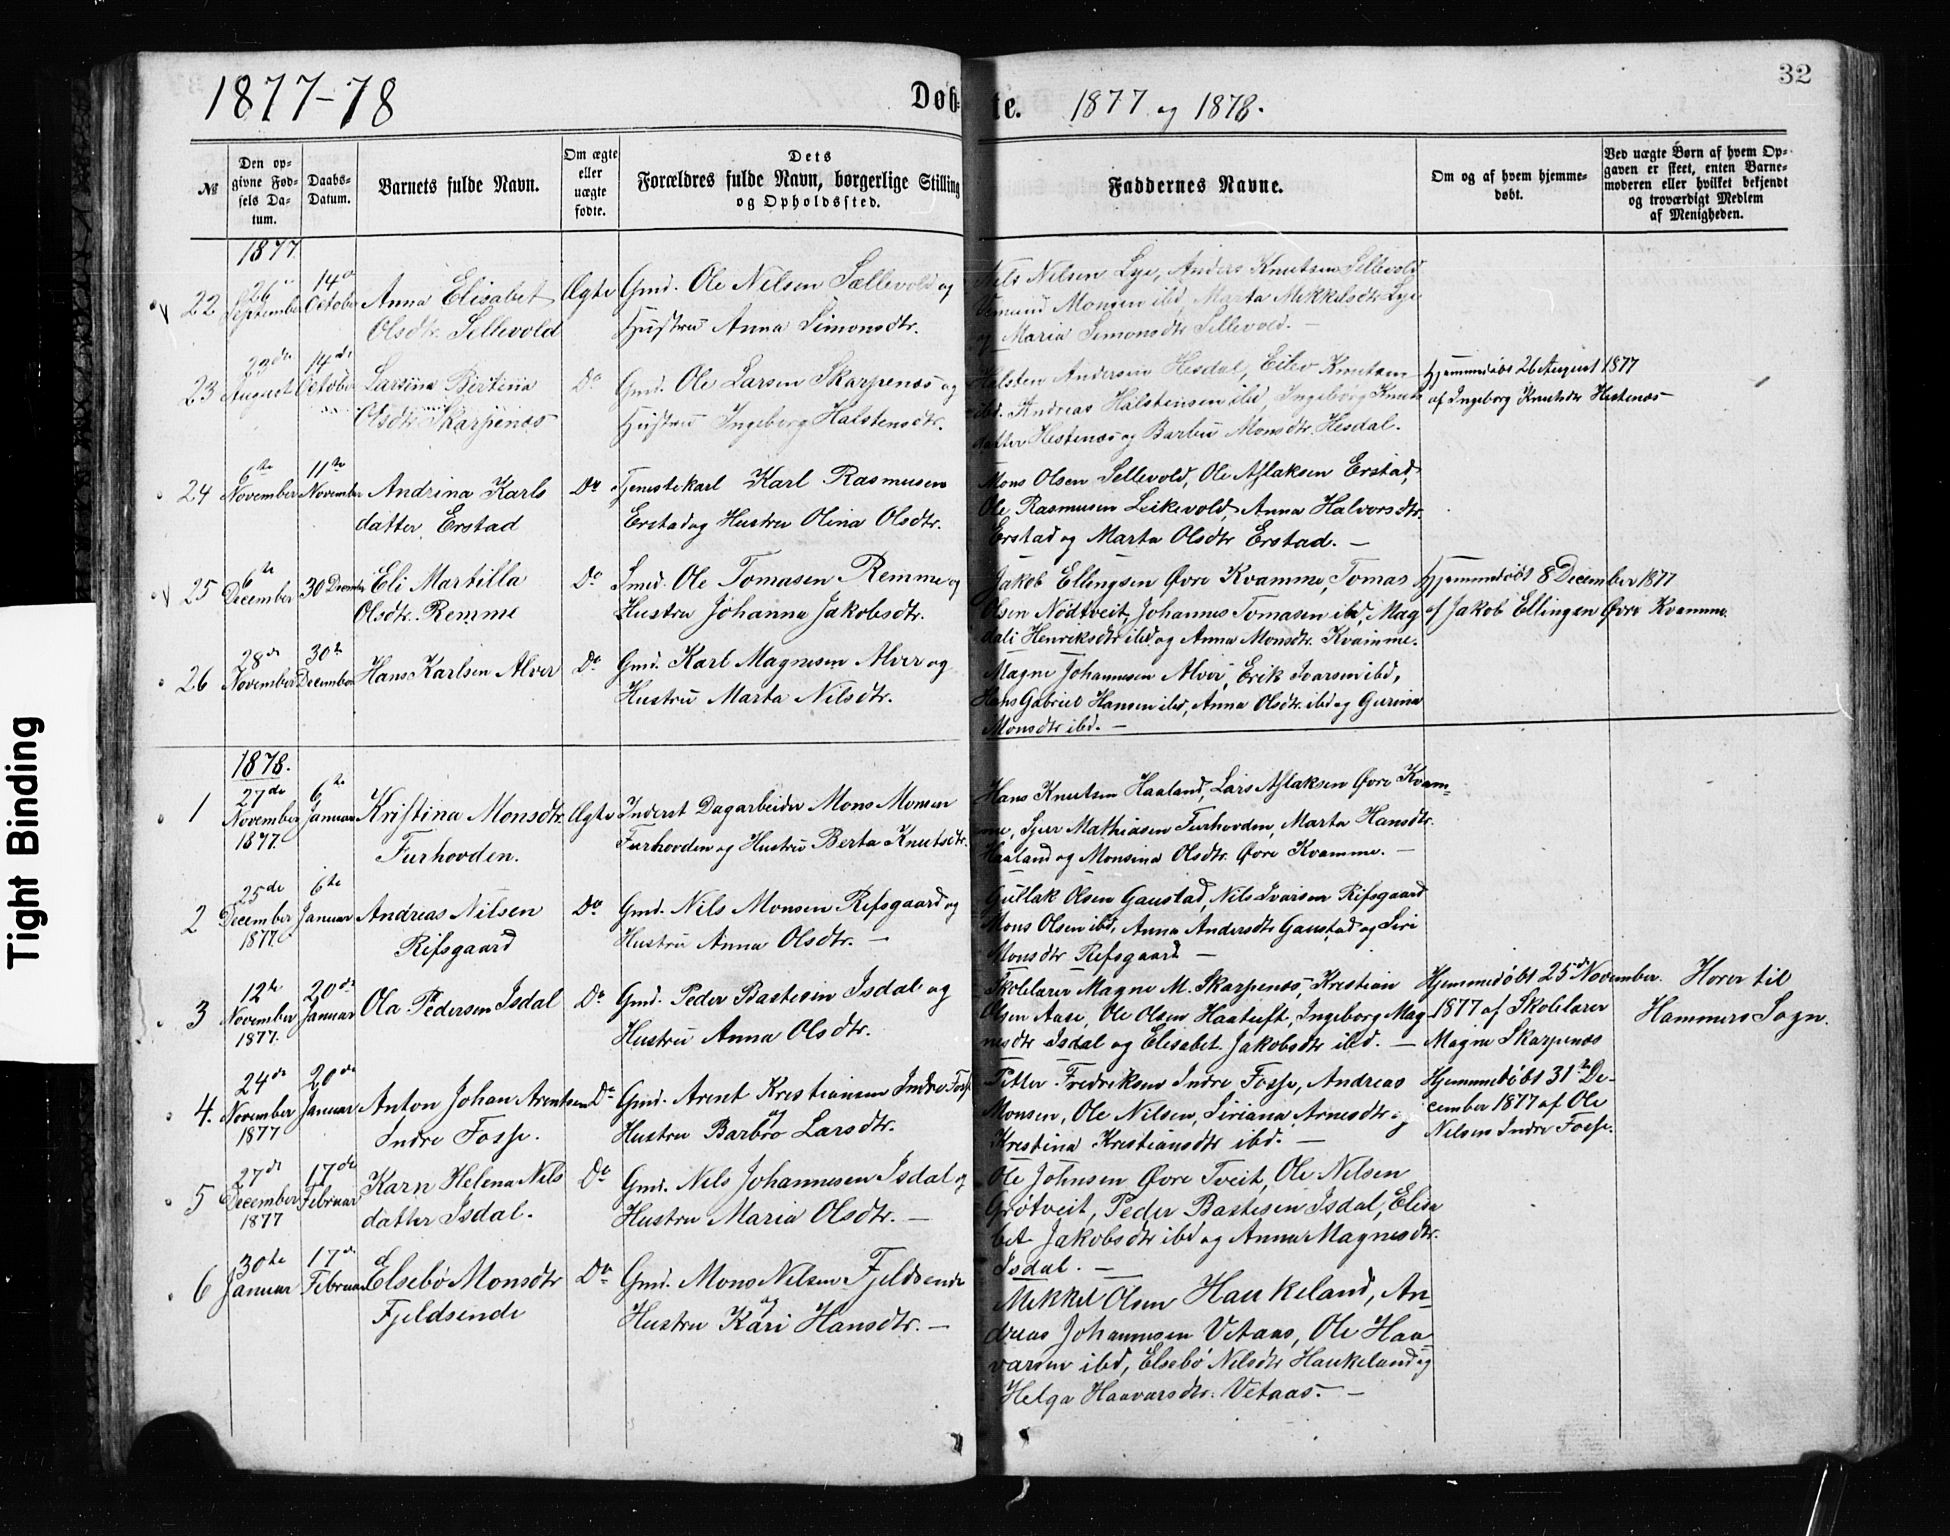 1877-78
Døb-
te.
1877 og 1878.
32
№
Den op-
givne Fød-
sels Da-
tum.
Daabs-
Datum.
Barnets fulde Navn.
Om ægte
eller
uægte
fødte.
Dets
Forældres fulde Navn, borgerlige Stilling
og Opholdssted.
Faddernes Navne.
Om og af hvem hjemme-
døbt.
Ved uægte Børn af hvem Op-
gaven er skeet, enten Barne-
moderen eller hvilket bekjendt
og troværdigt Medlem
af Menigheden.
1877
22
26
September
14de
October
Anna Elisabet
Olsdtr. Sellevold
Ægte
Gmd. Ole Nilsen Sællevold og
Hustru Anna Simonsdtr.
Nils Nilsen Lye, Anders Knutsen Sellevold
Monsen ibd, Marta Mikkelsdtr Lye
og Maria Simonsdtr Sellevold. —
23
23de
August
14de
October
Larsina Bertina
Olsdtr. Skarpenæs
Do
Gmd. Ole Larsen Skarpenæs og
Hustru Ingeborg Halstensdtr.
Halsten Andersen Hesdal, Eilev Knutsen
ibd. Andreas Halstensen ibd, Ingebørg Knuts
datter Hestenæs og Barbru Monsdtr. Hesdal.
Hjemmedøbt 26 August 1877
af Ingeborg Knutsdtr Hestenæs
24
6te
November
11te
November
Andrina Karls
datter Erstad
Do
Tjenestekarl Karl Rasmusen
Erstad og Hustru Olina Olsdtr.
Mons Olsen Sellevold, Ole Aslaksen Erstad,
Ole Rasmusen Leikevold, Anna Halvorsdtr.
Erstad og Marta Olsdtr Erstad. —
25
6te
December
30 December
Eli Martilla
Olsdtr. Remme
Do
Smed. Ole Tomasen Remme og
Hustru Johanna Jakobsdtr.
Jakob Ellingsen Øvre Kvamme, Tomas
Olsen Nødtveit, Johannes Tomasen ibd, Mag
dali Henriksdtr ibd og Anna Monsdtr. Kvamme.
Hjemmedøbt 8 December 1877
af Jakob Ellingsen Øvre Kvamme.
26
28de
November
30te
December
Hans Karlsen Alver
Do
Gmd. Karl Magnesen Alver og
Hustru Marta Nilsdtr.
Magne Johannesen Alver, Erik Ivarsen ibd,
Hans Gabriel Hansen ibd, Anna Olsdtr. ibd og Gurina
Monsdtr ibd. —
1878.
1
27de
November
1877.
6te
Januar
Kristina Monsdtr
Furhovden.
Ægte
Inderst Dagarbeider Mons Monsen
Furhovden og Hustru Berta Knutsdtr.
Hans Knutsen Haaland, Lars Aslaksen Øvre Kvam-
me, Sjur Mathiasen Furhovden, Marta Hansdtr.
Haaland og Monsina Olsdtr. Øvre Kvamme. —
2
25de
December
1877.
6te
Januar
Andreas Nilsen
Rifsgaard
Do
Gmd. Nils Monsen Refsgaard og
Hustru Anna Olsdtr. —
Gullak Olsen Gaustad, Nils Ivarsen Rifsgaard
Mons Olsen ibd, Anna Andersdtr Gaustad og Siri
Monsdtr Refsgaard —
3
12te
November
1877.
20de
Januar
Ola Pedersen Isdal
Do
Gmd. Peder Bastesen Isdal og
Hustru Anna Olsdtr.
Skolelærer Magne M. Skarpenæs, Krestian
Olsen Aase, Ole Olsen Haatuft, Ingeborg Mag
nesdtr Isdal og Elisabet Jakobsdtr ibd. —
Hjemmedøbt 25de November.
1877 af Skolelærer
Magne Skarpenæs
Hører til
Hammers Sogn.
4.
24de
November
1877
20de
Januar
Anton Johan Arentsen
Indre Fosse.
Do
Gmd. Arent Krestiansen Indre Fosse
og
Hustru Barbro Larsdtr.
Petter Fredriksen Indre Fosse, Andreas
Monsen, Ole Nilsen, Siriana Arnesdtr og
Krestina Krestiansdtr ibd. —
Hjemmedøbt 31te De-
cember 1877 af Ole
Nilsen Indre Fosse.
5
27de
December
1877
17de
Februar
Karn Helena Nils
datter Isdal.
Do
Gmd. Nels Johannesen Isdal og
Hustru Maria Olsdtr. —
Ole Johnsen Øvre Tveit, Ole Nelsen
Grøtveit, Peder Bastesen Isdal, Elisa
bet Jakobsdtr ibd og Anna Magnesdtr.
Isdal. —
6
30te
Januar
17de
Februar
Elsebø Monsdtr
Fjeldsende
Do
Gmd. Mons Nilsen Fjeldsende
og
Hustru Kari Hansdtr. —
Mikkel Olsen Haukeland, An-
dreas Johannesen Vetaas, Ole Haa
varsen ibd, Elsebø Nilsdtr Haukeland og
Helga Haavarsdtr. Vetaas. —
Tight Binding